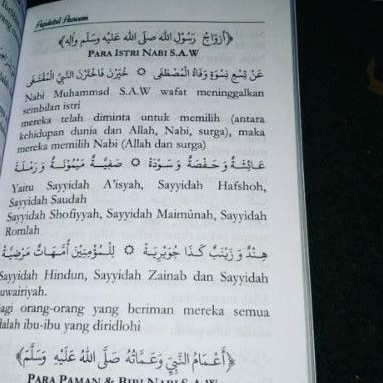 Aqidatul Awwam
﴿أَزْوَاجُ رَسُوْلِ اللهِ صَلَّى اللهُ عَلَيْهِ وَسَلَّمَ وَآلِهِ﴾
PARA ISTRI NABI S.A.W
عَنْ تِسْعِ نِسْوَةٍ وَفَاةُ الْمُصْطَفَى ۞ خُيِّرْنَ فَاخْتَرْنَ النَّبِيَّ الْمُقْتَفَى
Nabi Muhammad S.A.W wafat meninggalkan
sembilan istri
mereka telah diminta untuk memilih (antara
kehidupan dunia dan Allah, Nabi, surga), maka
mereka memilih Nabi (Allah dan surga)
عَائِشَةٌ وَحَفْصَةٌ وَسَوْدَةٌ ۞ صَفِيَّةٌ مَيْمُوْنَةٌ وَرَمْلَةٌ
Yaitu Sayyidah A'isyah, Sayyidah Hafshoh,
Sayyidah Saudah
Sayyidah Shofiyyah, Sayyidah Maimûnah, Sayyidah
Romlah
هِنْدٌ وَزَيْنَبٌ كَذَا جُوَيْرِيَةٌ ۞ لِلْمُؤْمِنِيْنَ أُمَّهَاتٌ مَرْضِيَّةٌ
Sayyidah Hindun, Sayyidah Zainab dan Sayyidah
Juwairiyah.
Bagi orang-orang yang beriman mereka semua
adalah ibu-ibu yang diridlohi
﴿أَعْمَامُ النَّبِيِّ وَعَمَّاتُهُ صَلَّى اللهُ عَلَيْهِ وَسَلَّمَ﴾
PARA PAMAN & BIBI NABI S.A.W